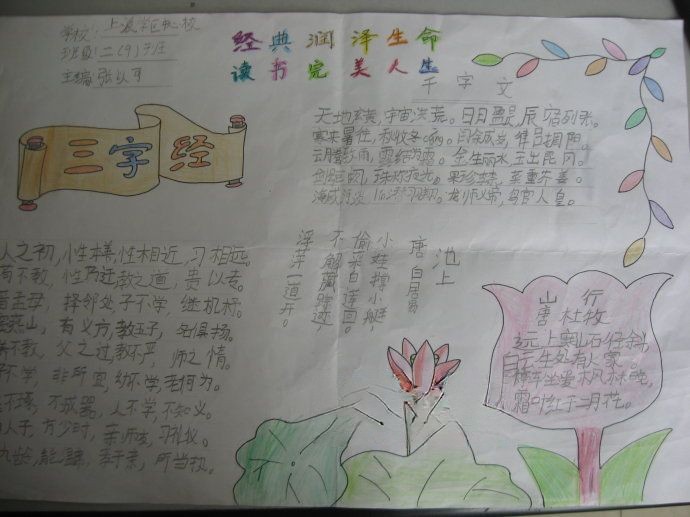 学校：上凌学区中心校
班级：二（9）班
主编 张以可
经典润泽生命
读书完美人生
千字文
天地玄黄，宇宙洪荒。日月盈昃，辰宿列张。
寒来暑往，秋收冬藏。闰余成岁，律吕调阳。
云腾致雨，露结为霜。金生丽水，玉出昆冈。
剑号巨阙，珠称夜光。果珍李柰，菜重芥姜。
海咸河淡，鳞潜羽翔。龙师火帝，鸟官人皇。
三字经
人之初，性本善，性相近，习相远。
苟不教，性乃迁，教之道，贵以专。
昔孟母，择邻处，子不学，继机杼。
窦燕山，有义方，教五子，名俱扬。
养不教，父之过，教不严，师之惰。
子不学，非所宜，幼不学，老何为。
玉不琢，不成器，人不学，不知义。
为人子，方少时，亲师友，习礼仪。
九龄，能温，孝于亲，所当执。
池上
唐 白居易
小娃撑小艇，
偷采白莲回。
不解藏踪迹，
浮萍一道开。
山行
唐 杜牧
远上寒山石径斜，
白云生处有人家。
停车坐爱枫林晚，
霜叶红于二月花。